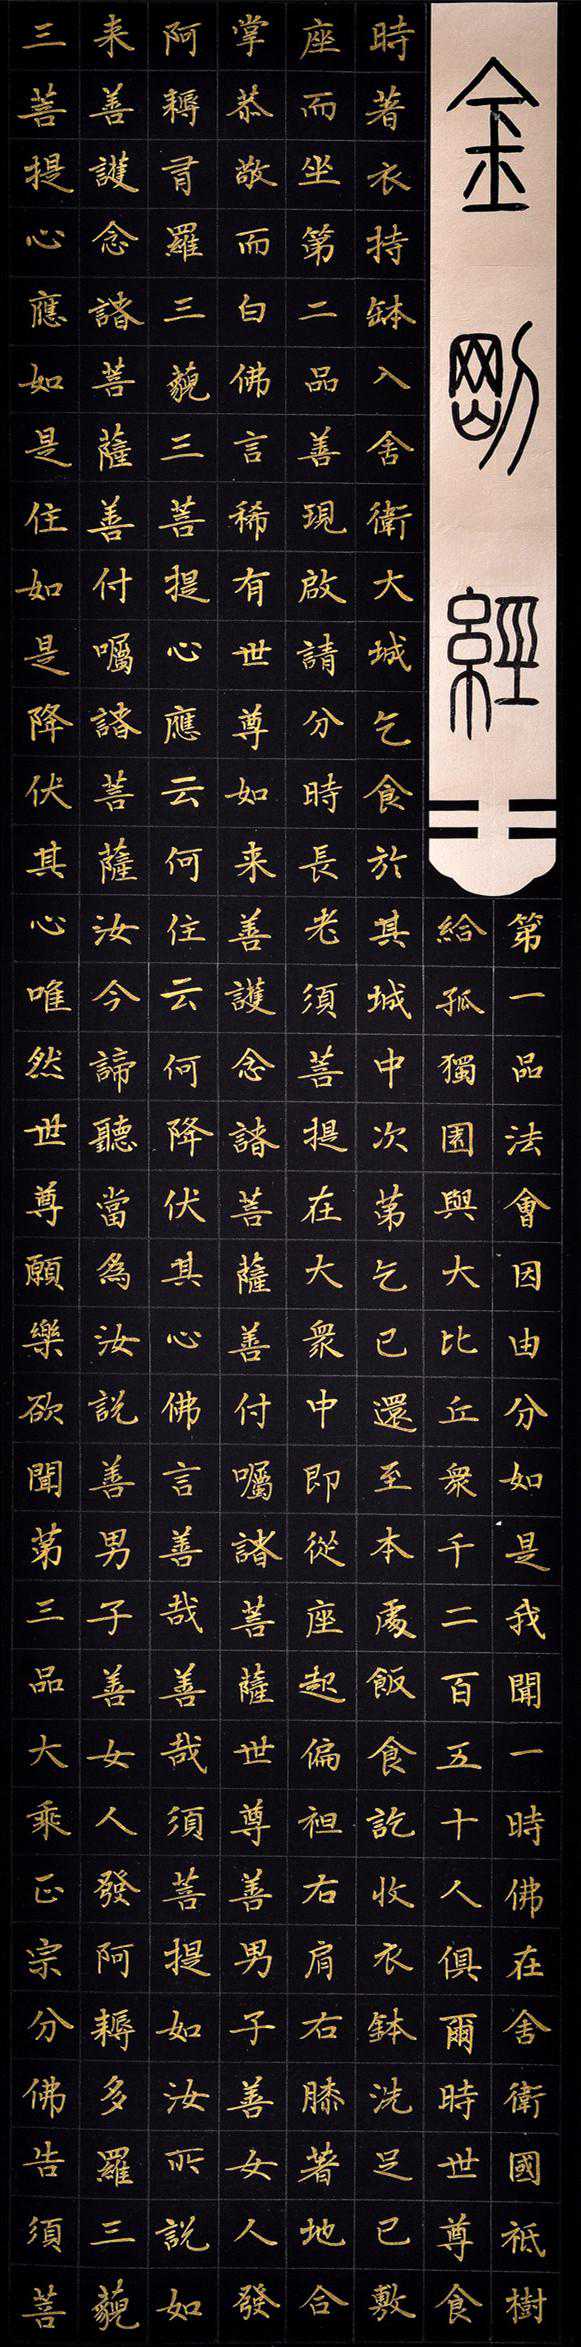 金剛經
第一品法會因由分如是我聞一時佛在舍衛國祗樹
給孤獨園與大比丘衆千二百五十人俱爾時世尊食
時著衣持缽入舍衛大城乞食於其城中次第乞已還至本處飯食訖收衣鉢洗足已敷
座而坐第二品善現啟請分時長老須菩提在大衆中即從座起偏袒右肩右膝著地合
掌恭敬而白佛言稀有世尊如来善護念諸菩薩善付囑諸菩薩世尊善男子善女人發
阿耨多羅三藐三菩提心應云何住云何降伏其心佛言善哉善哉須菩提如汝所說如
来善護念諸菩薩善付囑諸菩薩汝今諦聽當為汝說善男子善女人發阿耨多羅三藐
三菩提心應如是住如是降伏其心唯然世尊願樂欲聞第三品大乘正宗分佛告須菩